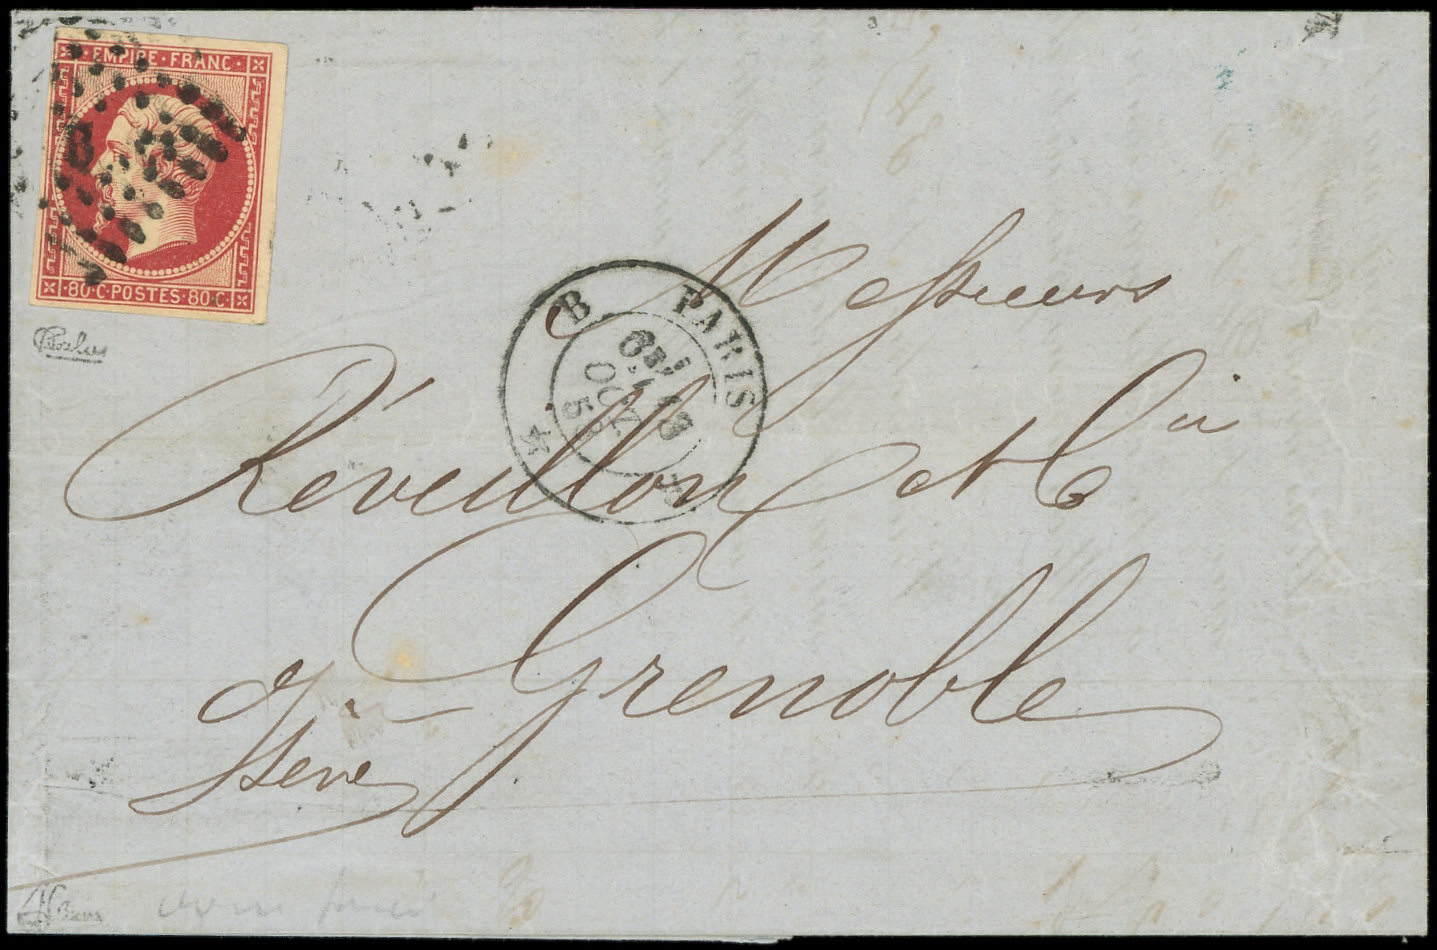 EMPIRE·FRANC·
B
·80·C·POSTES·80·C·
B PARIS B
6E
13
OCT.
Messieurs
Réveillon et Cie
Grenoble
Isère